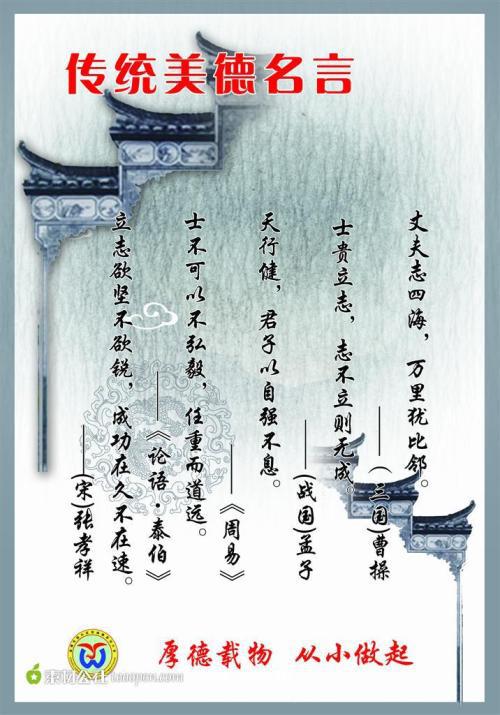 传统美德名言
丈夫志四海，万里犹比邻。
——（三国）曹操
士贵立志，志不立则无成。
——（战国）孟子
天行健，君子以自强不息。
——《周易》
士不可以不弘毅，任重而道远。
——《论语·泰伯》
立志欲坚不欲锐，成功在久不在速。
——（宋）张孝祥
厚德载物 从小做起
素材公社 tooopen.com